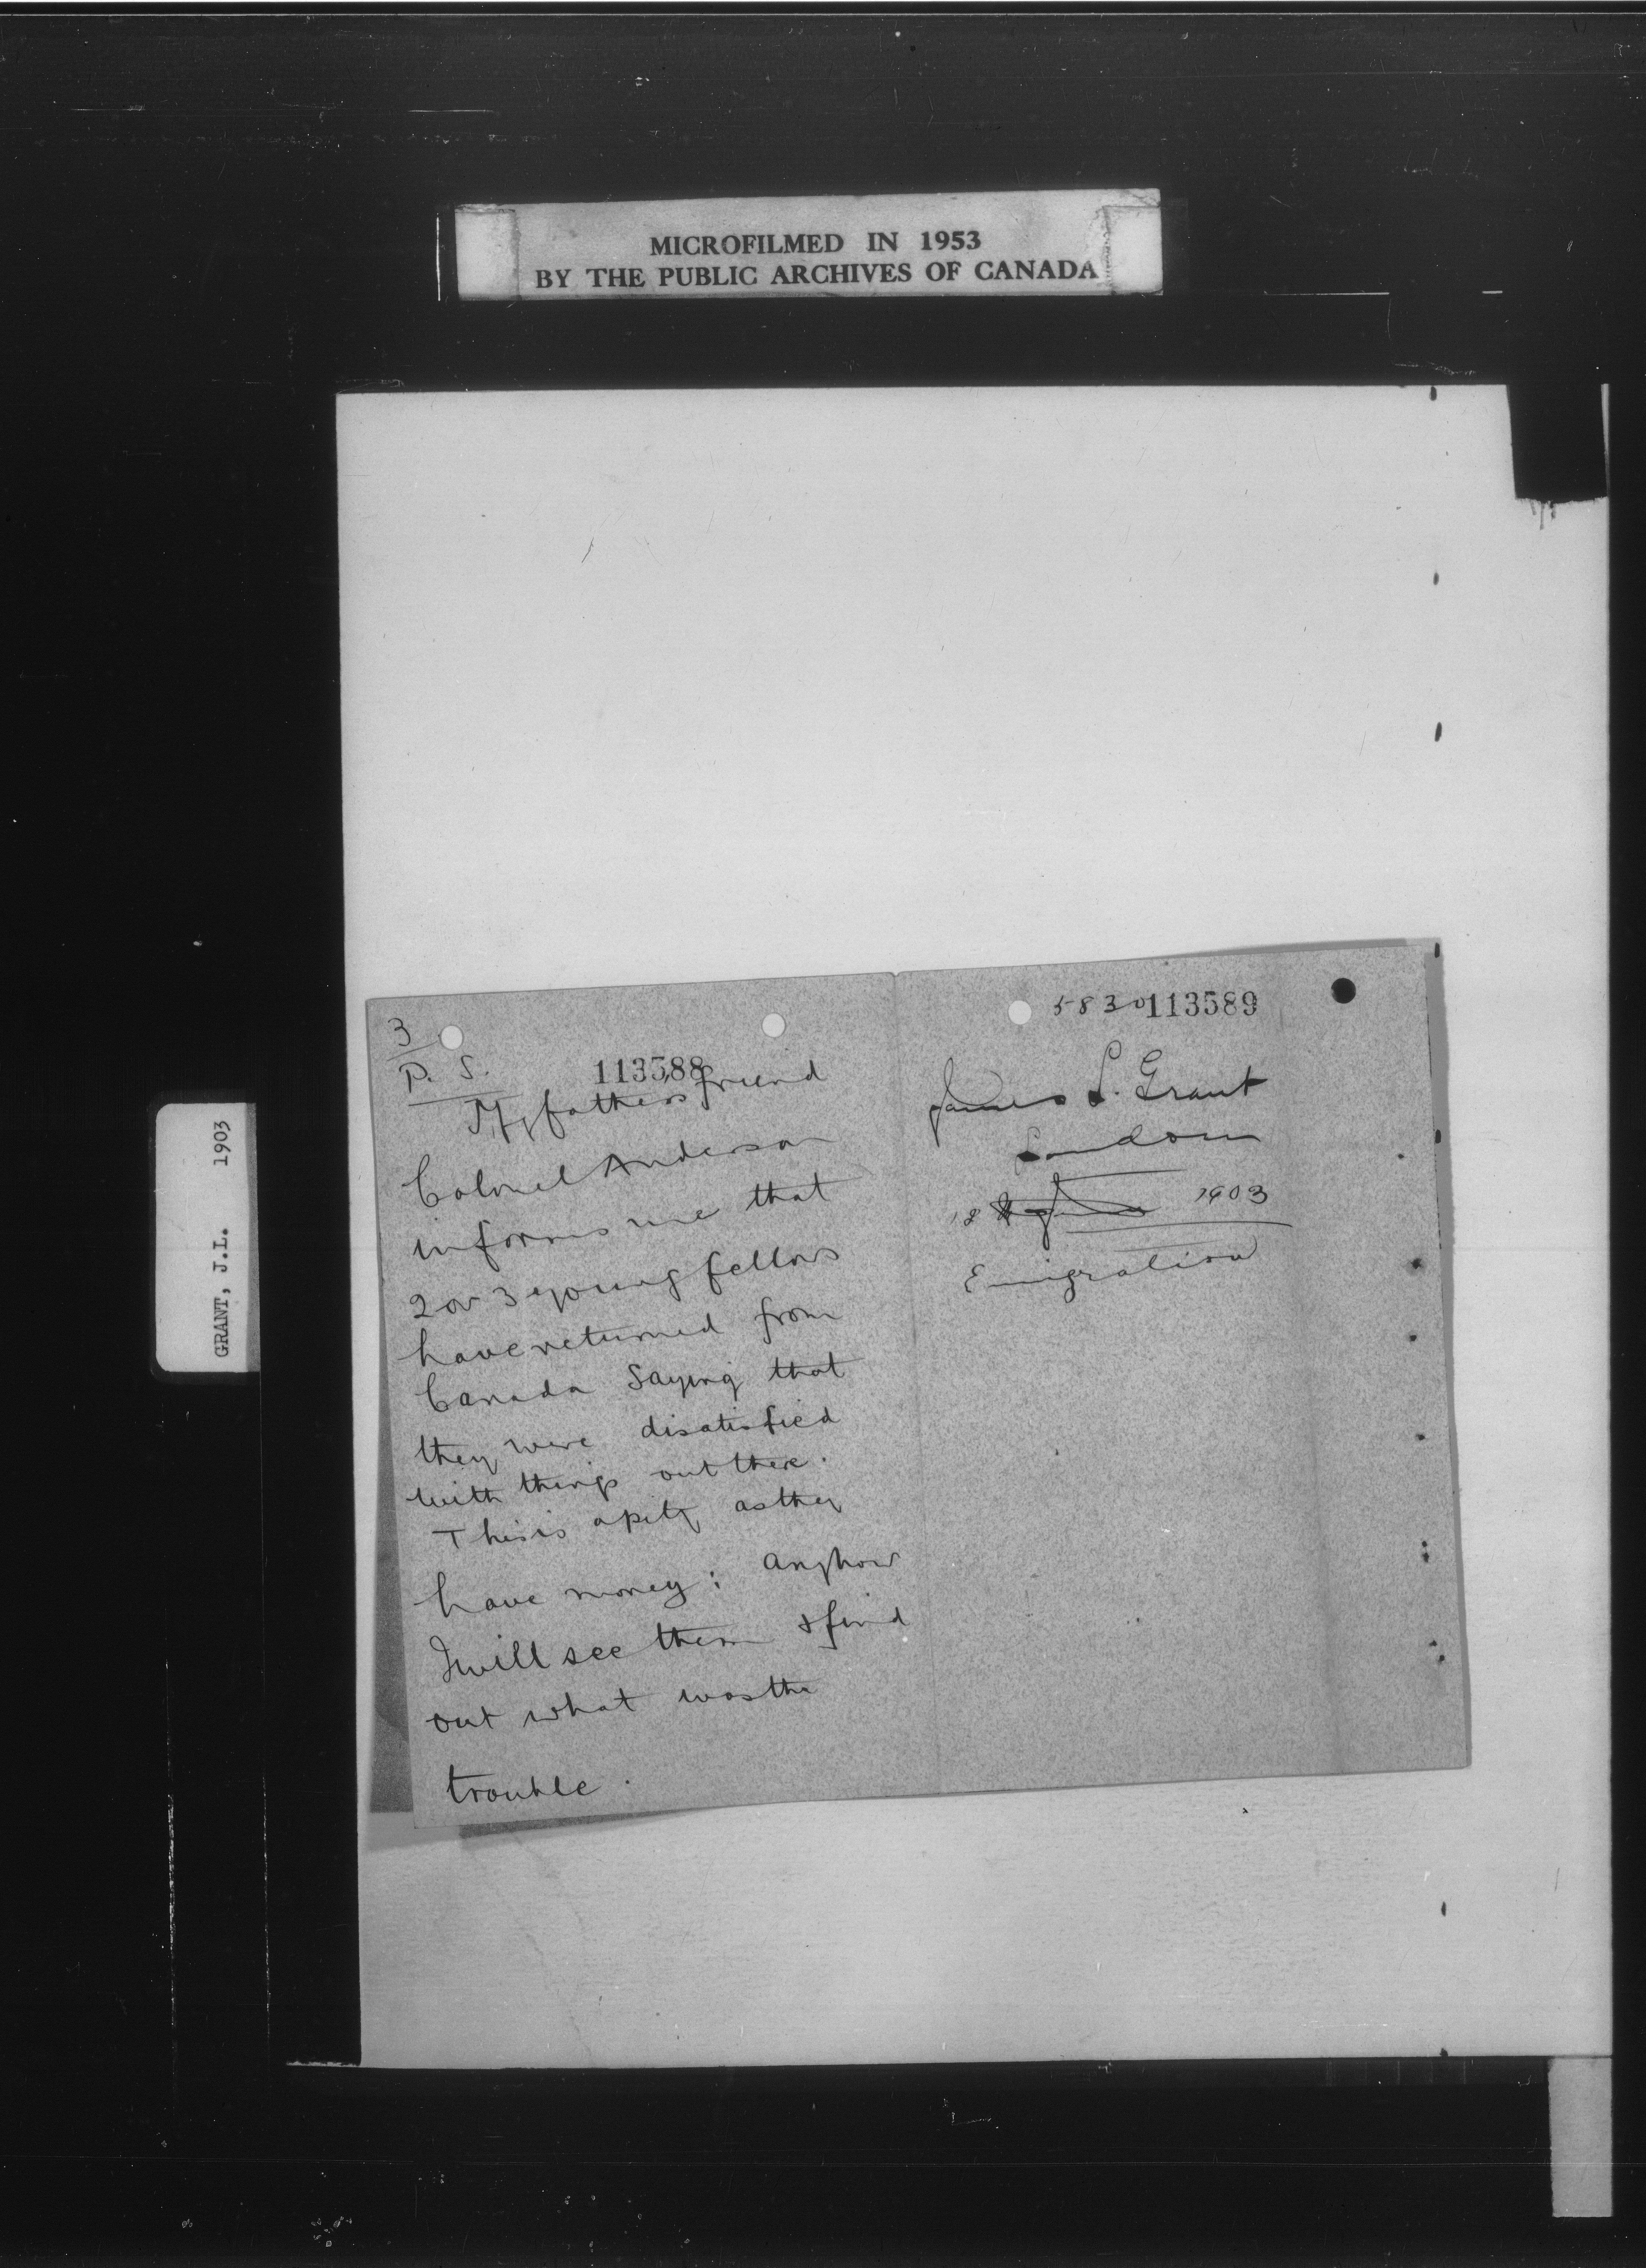 MICROFILMED IN 1953
BY THE PUBLIC ARCHIVES OF CANADA
GRANT, J.L. 1903
3
P. S.
113588
My fathers friend
Colonel Anderson
informs me that
2 or 3 young fellows
have returned from
Canada saying that
they were disatisfied
with things out there.
This is a pity as they
have money; anyhow
I will see them & find
out what was the
trouble.
5830 113589
James L. Grant
London
18 1903
Emigration